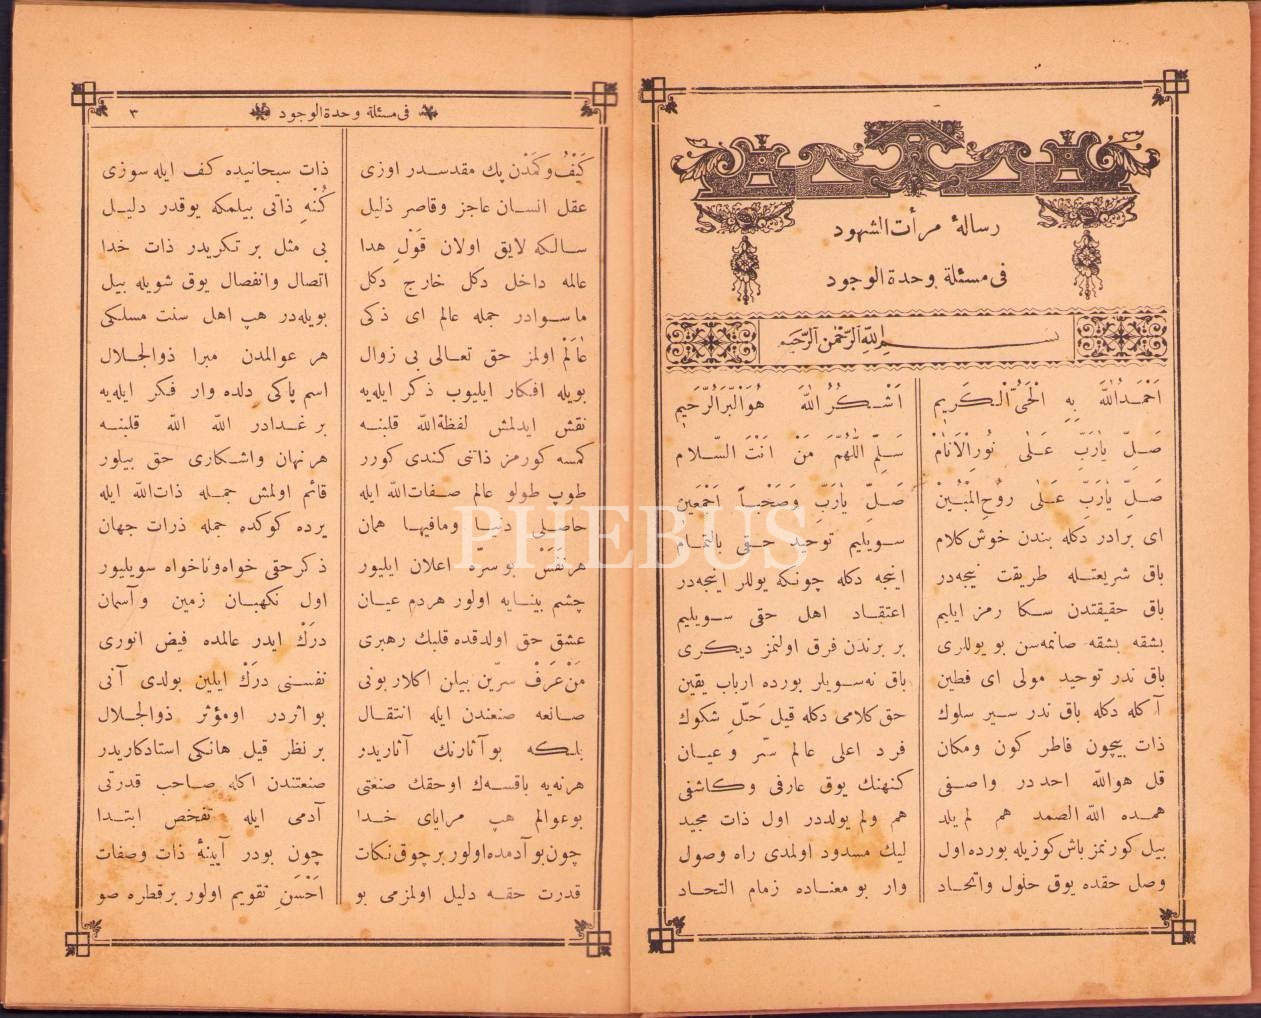 رسالۀ مرأت الشهود
فی مسئلة وحدة الوجود
بسم الله الرحمن الرحیم
اَحْمَدُ اللهَ بِهِ الْحَیُّ الْکَرِیم اَشْکُرُ اللهَ هُوَ الْبَرُّ الرَّحِیم
صَلِّ یَارَبِّ عَلٰی نُورِ الْاَنَامْ سَلِّمِ اللّٰهُمَّ مَنْ اَنْتَ السَّلام
صَلِّ یَارَبِّ عَلٰی رُوحِ الْمُبِینْ صَلِّ یَارَبِّ وَصَحْبًا اَجْمَعِین
ای برادر دکله بندن خوش کلام سویلیم توحید حقی بالتمام
باق شریعتله طریقت نیجه‌در اینجه دکله چونکه یوللر اینجه‌در
باق حقیقتدن سکا رمز ایلیم اعتقاد اهل حقی سویلیم
بشقه بشقه صانمه‌سن بو یوللری بر برندن فرق اولنمز دیکری
باق ندر توحید مولی ای فطین باق نه‌سویلر بورده ارباب یقین
آکله دکله باق ندر سیر سلوك حق کلامی دکله قیل حَلِّ شکوك
ذات بیچون فاطر کون ومکان فرد اعلی عالم سّر وعیان
قل هوالله احد در واصفی کنهنك یوق عارفی وکاشفی
همده الله الصمد هم لم یلد هم ولم یولددر اول ذات مجید
بیل کورنمز باش کوزیله بورده اول لیك مسدود اولمدی راه وصول
وصل حقده یوق حلول واتحاد وار بو معناده زمام التحاد
فی مسئلة وحدة الوجود ٣
کَیْفُ وکَمْدَن پك مقدسدر اوزی ذات سبحانیده کف ایله سوزی
عقل انسان عاجز وقاصر ذلیل کُنْهِ ذاتی بیلمکه یوقدر دلیل
سالکه لایق اولان قَوْلِ هدا بی مثل بر تکریدر ذات خدا
عالمه داخل دکل خارج دکل اتصال وانفصال یوق شویله بیل
ماسوادر جمله عالم ای ذکی بویله‌در هپ اهل سنت مسلکی
عٰالَمْ اولمز حق تعالی بی زوال هر عوالمدن مبرا ذوالجلال
بویله افکار ایلیوب ذکر ایله‌یه اسم پاکی دلده وار فکر ایله‌یه
نقش ایدلمش لفظة‌الله قلبنه بر غدادر الله الله قلبنه
کمسه کورمز ذاتنی کندی کورر هر نهان واشکاری حق بیلور
طوپ طولو عالم صفات‌الله ایله قائم اولمش جمله ذات‌الله ایله
حاصلی دنیا ومافیها همان یرده کوکده جمله ذرات جهان
هر نَفَسْ بو سرّه اعلان ایلیور ذکر حقی خواه وناخواه سویلیور
چشم بینایه اولور هردم عیان اول نکهبان زمین وآسمان
عشق حق اولدقده قلبك رهبری درَكْ ایدر عالمده فیض انوری
مَنْ عَرَفْ سرّین بیلن اکلار بونی نفسنی درَكْ ایلین بولدی آنی
صانعه صنعندن ایله انتقال بو اثردر اومؤثر ذوالجلال
بلکه بو آثارنك آثاریدر بر نظر قیل هانکی استادکاریدر
هرنه‌یه باقسه‌ك اوحقك صنعتی صنعتندن اکله صاحب قدرتی
بوعوالم هپ مرایای خدا آدمی ایله تفحص ابتدا
چون بو آدمده اولور بر چوق نکات چون بودر آیینۀ ذات وصفات
قدرت حقه دلیل اولمزمی بو اَحْسَنِ تقویم اولور برقطره صو
PHEBUS